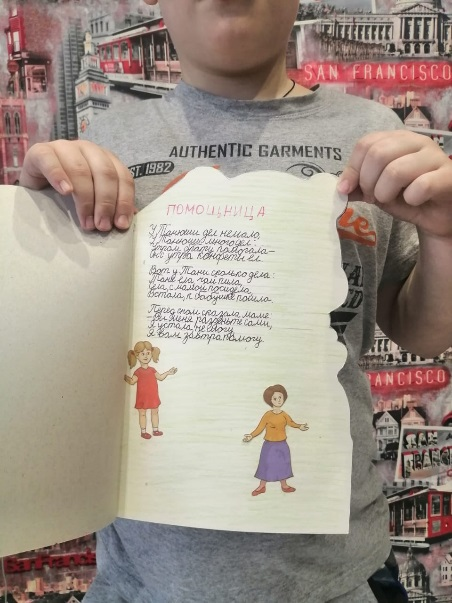 SAN FRANCISCO
AUTHENTIC GARMENTS
EST. 1982
ПОМОЩНИЦА
У Танюши дел немало,
У Танюши много дел:
Утром брату помогала –
Он с утра конфеты ел.
Вот у Тани сколько дела:
Таня ела, чай пила,
Села, с мамой посидела,
Встала, к бабушке пошла.
Перед сном сказала маме:
– Вы меня разденьте сами,
Я устала, не могу,
Я вам завтра помогу.
FRANCISCO